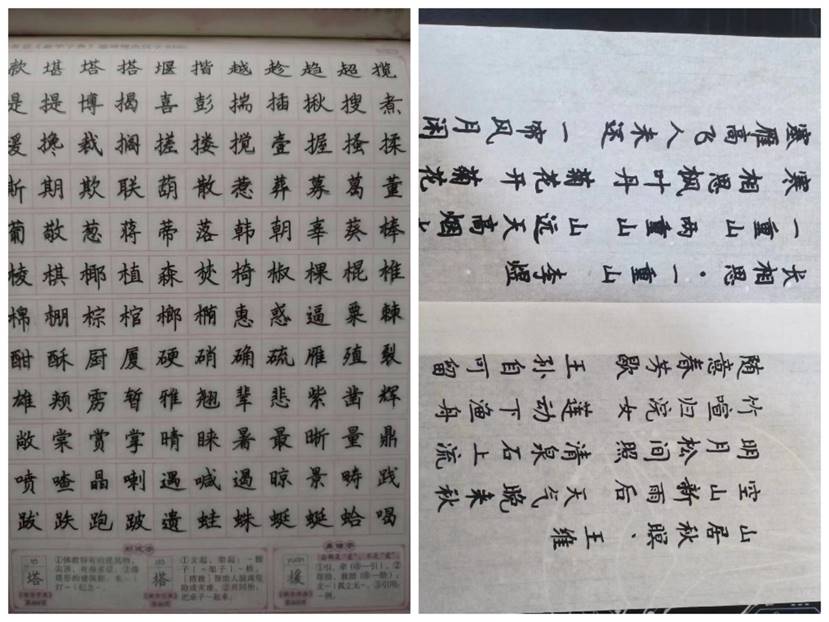 款堪塔搭堰揩越趁趋超揽
是提博揭喜彭揣插揪搜煮
援搀裁搁搓搂搅壹握搔揉
斯期欺联葫散惹葬募葛董
葡敬葱蒋蒂落韩朝辜葵棒
棱棋椰植森焚椅椒棵棍椎
棉棚棕棺榔椭惠惑逼粟棘
酣酥厨厦硬硝确硫雁殖裂
雄颊雳暂雅翘辈悲紫凿辉
敞棠赏掌晴睐暑最晰量鼎
喷喳晶喇遇喊遏晾景畴践
跋跌跑跛遗蛙蛛蜓蜒蛤喝
塔
搭
yuán
援
长相思·一重山 李煜
一重山 两重山 山远天高烟
寒相思枫叶丹 菊花开 菊花
塞雁高飞人未还 一帘风月闲
山居秋暝、王维
空山新雨后 天气晚来秋
明月松间照 清泉石上流
竹喧归浣女 莲动下渔舟
随意春芳歇 王孙自可留